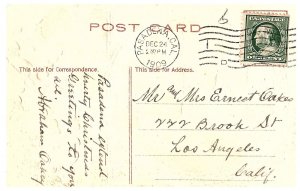 POST CARD
This side for Correspondence
This side for Address.
PASADENA, CAL.
DEC 24
1909
Pasadena extend
hearty Christmas
Greetings to you
all.
Abraham Oakey
Mr and Mrs Ernest Oakes
222 Brook St
Los Angeles
Calif.